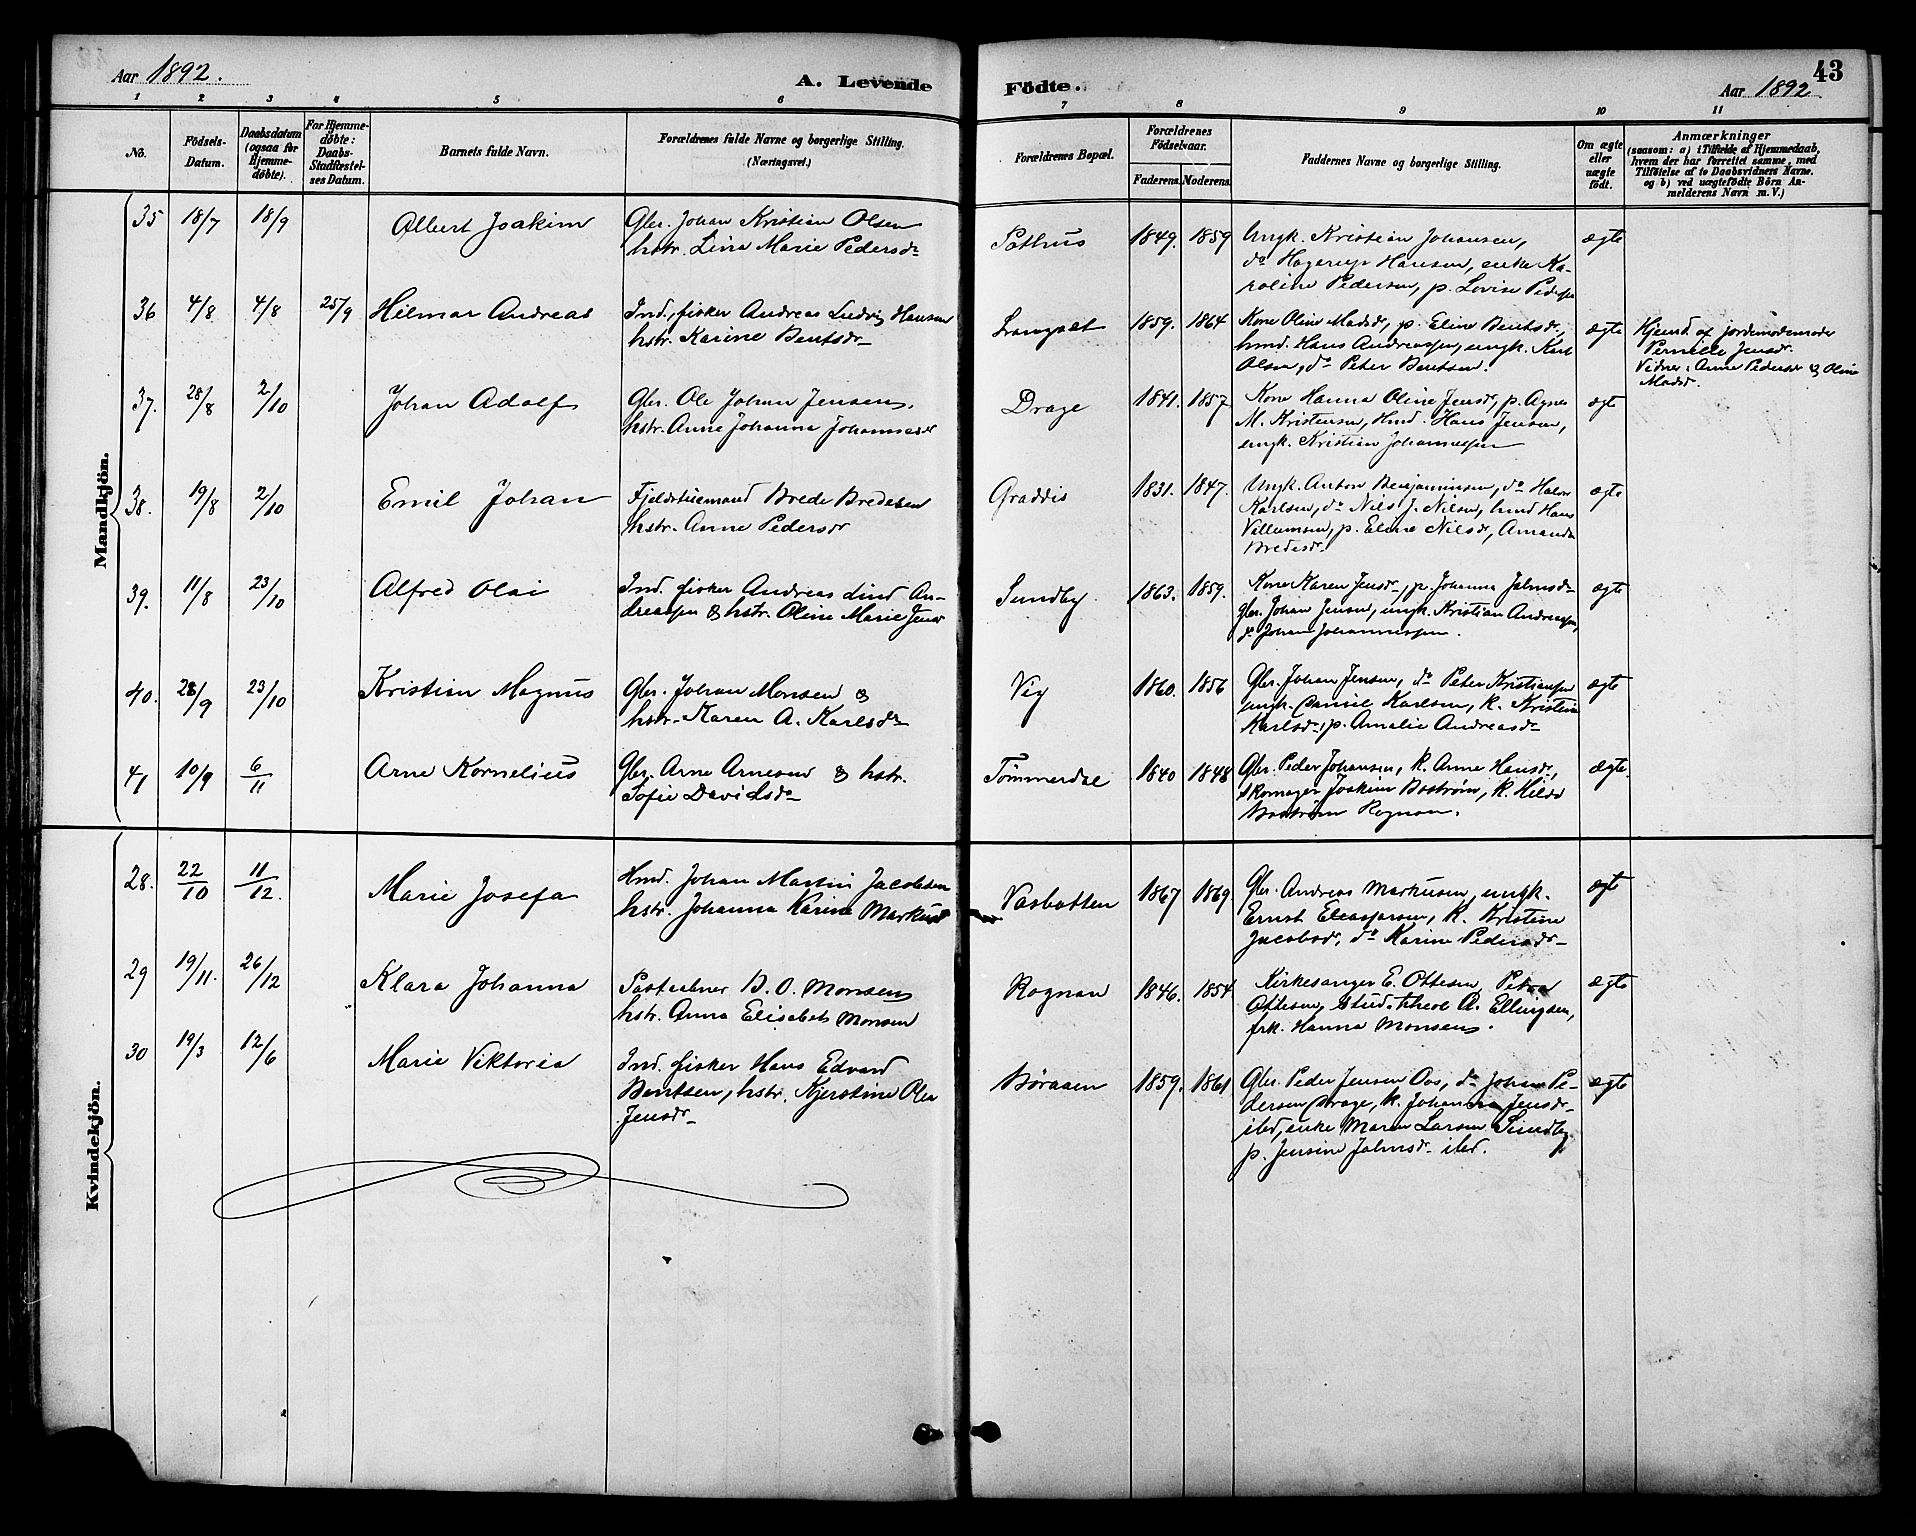 Aar 1892.
A. Levende
Födte.
43
Aar 1892
1 2 3 4 5 6 7 8 9 10 11
No.
Födsels-Datum.
Daabsdatum (ogsaa for Hjemme-döbte).
For Hjemme-döbte: Daabs-Stadfæstel-ses Datum.
Barnets fulde Navn.
Forældrenes fulde Navne og borgerlige Stilling.
(Næringsvei.)
Forældrenes Bopæl.
Forældrenes Födselsaar.
Faderens. Moderens.
Faddernes Navne og borgerlige Stilling.
Om ægte eller uægte födt.
Anmærkninger
(saasom: a) i Tilfælde af Hjemmedaab,
hvem der har forrettet samme, med
Tilföielse af to Daabsvidners Navne.
og b) ved uægtefödte Börn An-
melderens Navn m. V.)
Mandkjön.
35 18/7 18/9 Albert Joakim
Gbr. Johan Kristian Olsen
hstr. Lina Marie Pedersdr
1849. 1859
Ungk. Kristian Johansen,
do Hagerup Hansen, enke Ka-
roline Pedersen, p. Lovise
ægte
36 4/8 4/8 25/9 Hilmar Andreas
Ind., fisker Andreas Ludvig Hansen
hstr. Karine Bentsdr
1859. 1864
Kone Oline Madsdr, p. Eline Bentsdr,
hmd. Hans Andreassen, ungk. Karl
Olsen, do Peter Bentsen.
ægte
Hjemd. af jordemoder
Pernille Jensdr.
Vidner: Anne Pedersdr & Oline
Madsdr.
37. 28/8 2/10 Johan Adolf
Gbr. Ole Johan Jensen.
hstr. Anne Johanna Johannesdr
Drage 1841. 1857
Kone Hanna Oline Jensdr, p. Agnes
M. Kristensen, Hmd. Hans Jensen,
ungk. Kristian Johannessen
ægte
38. 19/8 2/10 Emil Johan
Fjeldstuemand Brede Bredesen
hstr. Anne Pedersdr
Graddis 1831. 1847.
Ungk. Anton Benjaminsen, do
Karlsen, do Nils J. Nilsen, hmd Hans
Villumsen, p. Eline Nilsdr, Amanda
Bredesdr.
ægte
39. 11/8 23/10 Alfred Olai
Ind. fisker Andreas Lind An-
dreassen & hstr. Oline Marie Jensdr
Sundby. 1863. 1859.
Kone Karen Jensdr, p. Johanna Jalmsdr
gbr. Johan Jensen, ungk. Kristian Andreassen,
do Johan Johannessen.
ægte
40. 28/9 23/10 Kristian Magnus
Gbr. Johan Monsen &
hstr. Karen A. Karlsdr
Vig 1860. 1856
Gbr. Johan Jensen, do Peter Kristiansen
ungk. Daniel Karlsen, k. Kristine
Karlsdr, p. Amalie Andreasdr
ægte
41 10/9 6/11 Arne Kornelius
Gbr. Arne Arnesen & hstr.
Sofie Davidsdr
Tømmerdal 1840 1848
Gbr. Peder Johansen, k. Anne Hansdr,
skomager Joakim Boström, k. Hilda
Boström Rognan.
ægte.
Kvindekjön.
28. 22/10 11/12. Marie Josefa
Hmd. Johan Martin Jacobsen
hstr. Johanna Karine Markusdr
Vasbotten 1867 1869
Gbr. Andreas Markusen, ungk.
Ernst Eleasarsen, k. Kristine
Jacobsdr, do Karine Pedersdr
ægte
29 19/11. 26/12 Klara Johanna
Postaabner B. O. Monsen
hstr. Anna Elisabet Monsen
Rognan 1846. 1854
Kirkesanger E. Ottesen, Petra
Ottesen, stud. theol A. Ellingsen,
frk. Hanna Monsen.
ægte
30 19/3 12/6 Marie Viktoria
Ind. fisker Hans Edvard
Bentsen, hstr. Kjerstine Olea
Jensdr
Børaasen 1859. 1861
Gbr. Peder Jensen Oos, do Johan Pe-
dersen Drage, k. Johanna Jensdr
ibd, enke Maren Larsen Sundby
p. Jensine Jalmsdr ibd.
ægte